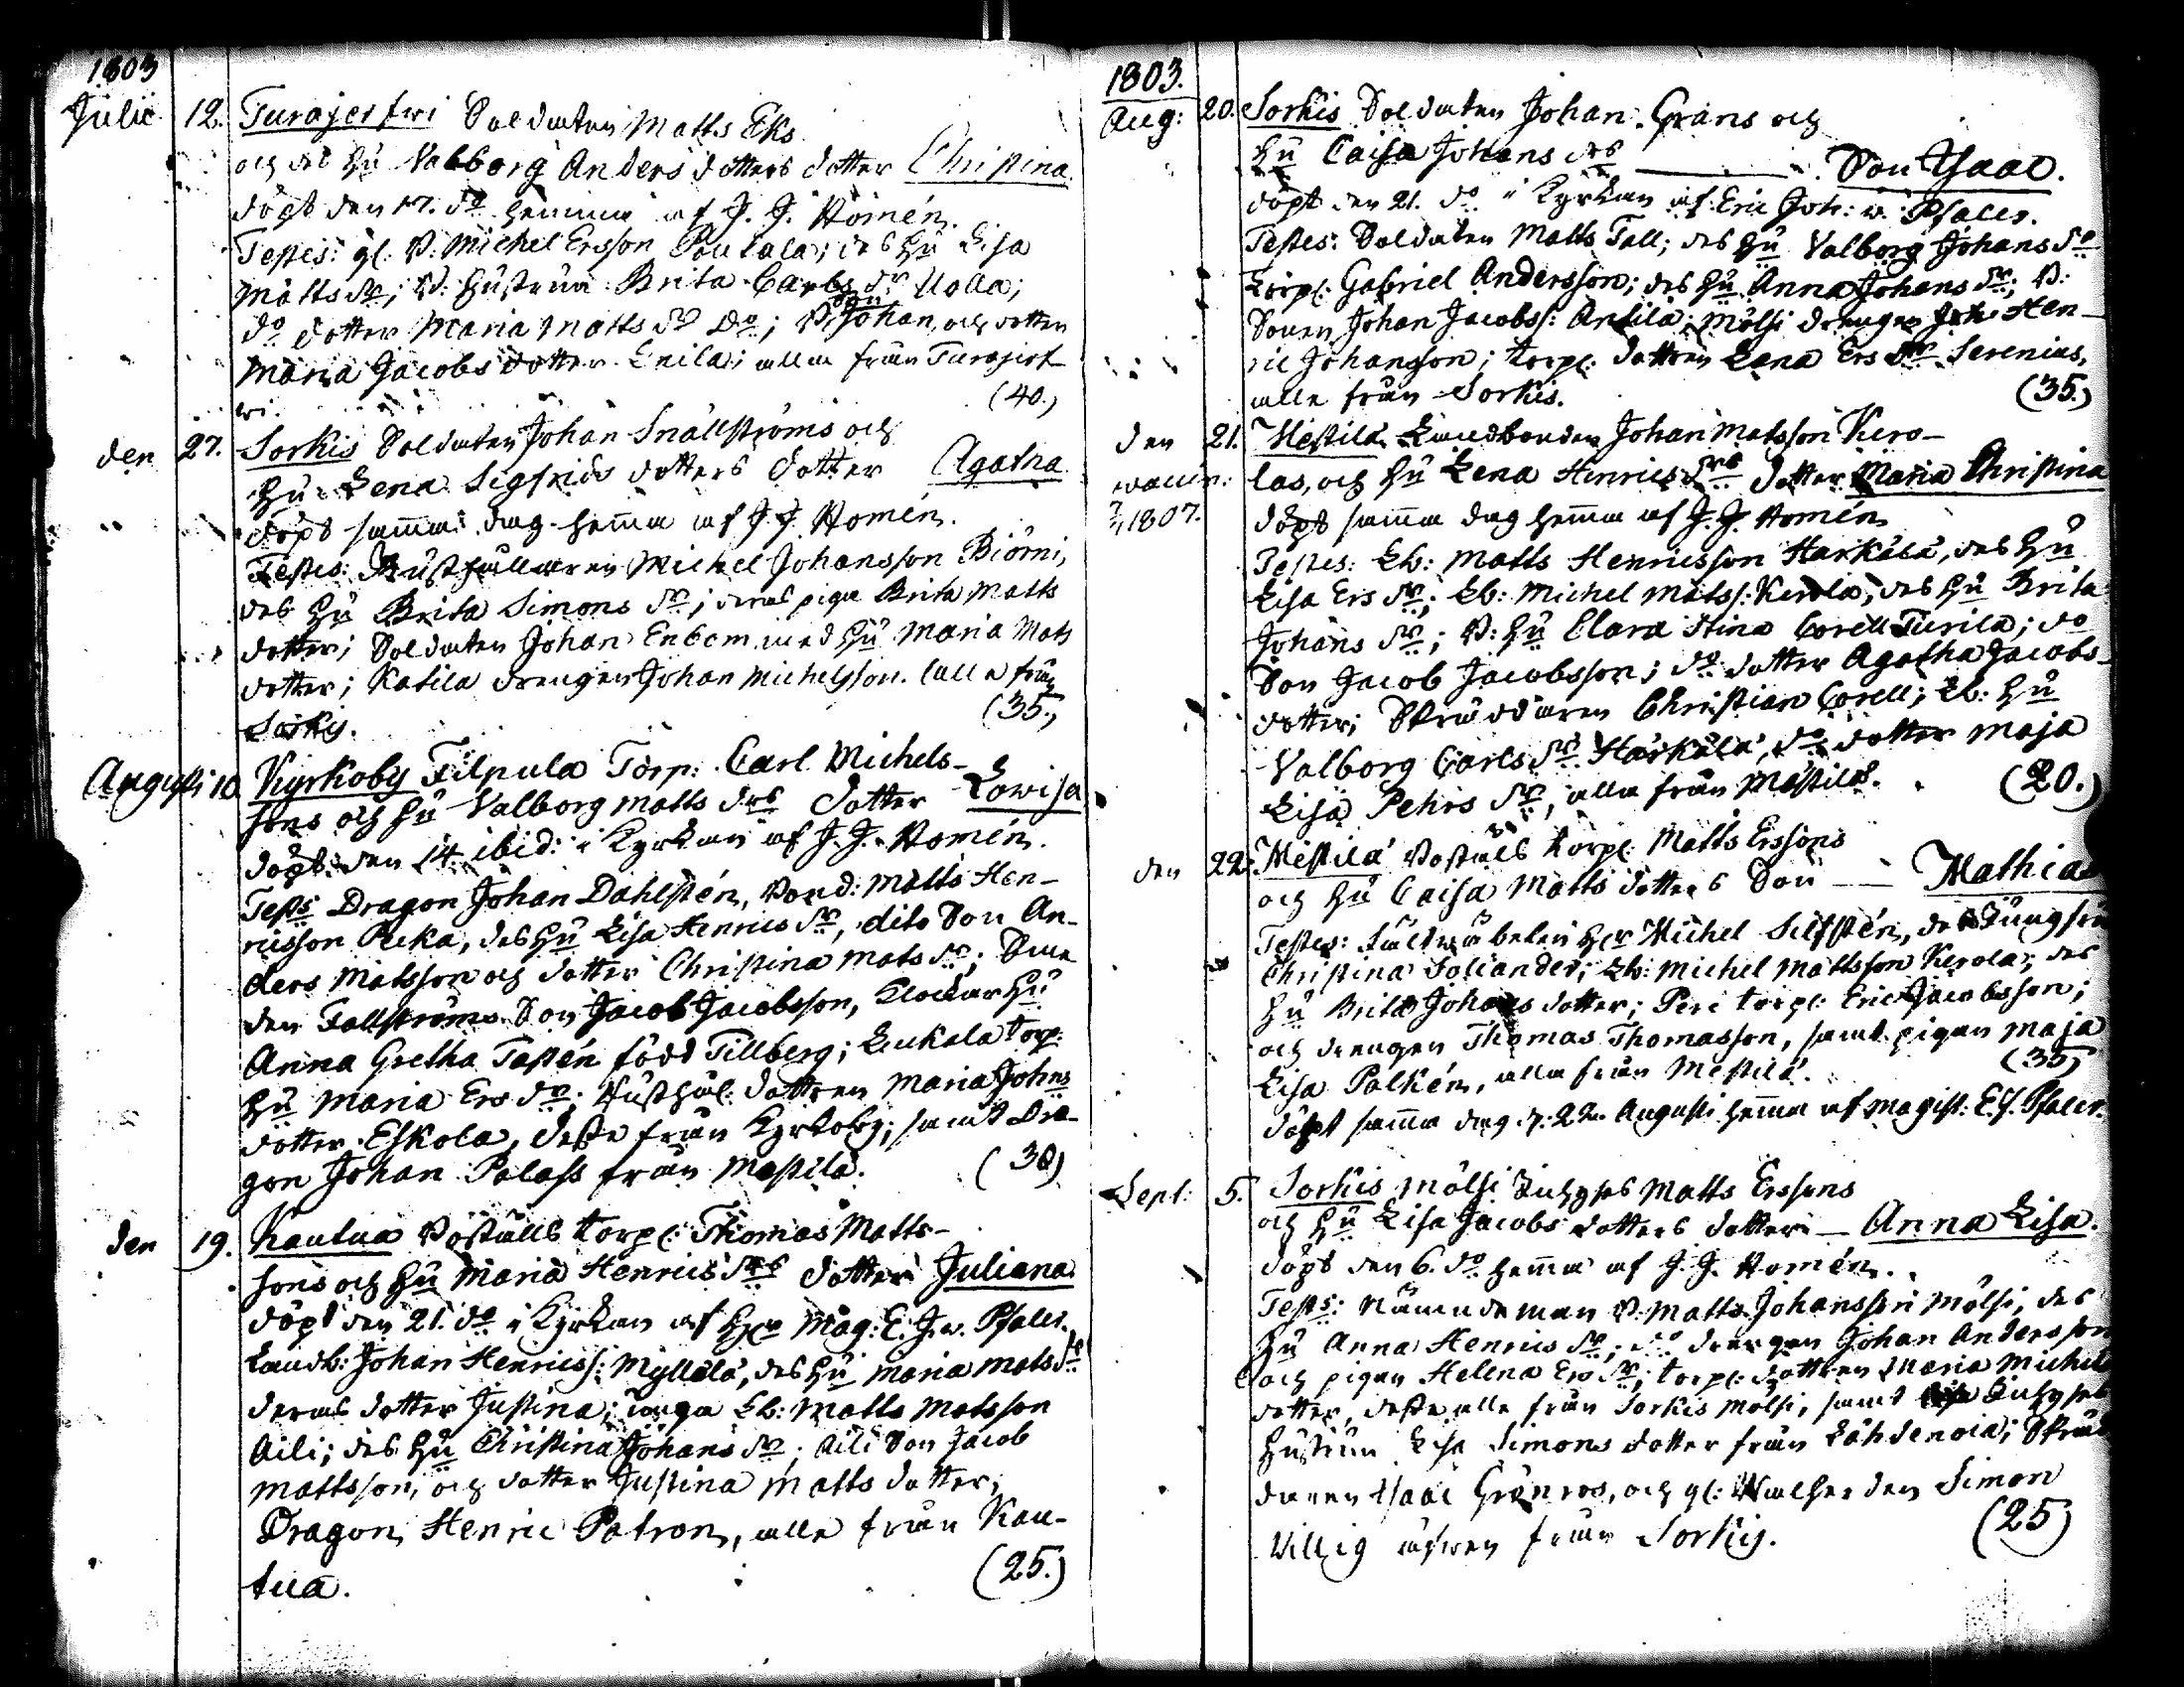 1803
Julii 12. Turajerfwi Soldaten Matts Eks
och des hu Valborg Anders dotters dotter Christina
döpt den 17. do hemma af J. J. Homén.
Testes: gl. B. Michel Ersson Poukala; des hu Lisa
Matts dr; B. hustrun Brita Carls dr Uolla;
do dotter Maria Matts dr do; B. Son Johan, och dotter
Maria Jacobs dotter Enila; alla från Turajerf-
wi. (40.)
den 27. Sorkis Soldaten Johan Snällströms och
hu Lena Sigfrids dotters dotter Agatha
döpt samma dag hemma af J. J. Homén.
Testes: Rusthållaren Michel Johansson Biörni,
des hu Brita Simons dr; deras piga Brita Matts
dotter; Soldaten Johan Enbom med hu Maria Mats
dotter; Katila drengen Johan Michelsson. (alla från
Sorkis. (35.)
Augusti 10. Kyrkoby Filpula Torp: Carl Michels-
sons och hu Valborg Matts drs dotter Lowisa
döpt den 14. ibid: i Kyrkan af J. J. Homén.
Tests Dragon Johan Dahlstén, Bond: Matts Hen-
ricsson Pecka, des hu Lisa Henrics dr, dito Son An-
ders Matsson och dotter Christina Mats dr; Sme-
den Fallströms Son Jacob Jacobsson, Klockar hu
Anna Gretha Tastén född Tillberg; Eukala torp:
hu Maria Ers dr; Rusthål: dottren Maria Johns
dotter Eskola, desse från Kyrkoby; samt Dra-
gon Johan Palass från Mestilä. (30)
den 19. Kautua Boställs torp: Thomas Matts-
sons och hu Maria Henrics drs dotter Juliana
döpt den 21. do i Kyrkan af Her Mag: E. J. v. Pfaler.
Landb: Johan Henricss: Myllälä, des hu Maria Mats dr
deras dotter Justina; unga Lb: Matts Matsson
Aili; des hu Christina Johans dr; Aili Son Jacob
Mattsson, och dotter Justina Matts dotter;
Dragon Henric Patron, alle från Kau-
tua. (25.)
1803.
Aug: 20. Sorkis Soldaten Johan Gräns och
hu Caisa Johans drs Son Isaac.
döpt den 21. do i Kyrkan af Eric Joh: v. Pfaler.
Testes: Soldaten Matts Tall; des hu Valborg Johans dr
Torp: Gabriel Andersson; des hu Anna Johans dr; B:
Sonen Johan Jacobss: Antila; Mölsi drengen Hen-
ric Johansson; torp: dottren Lena Ers dr Serenius,
alle från Sorkis. (35.)
den 21. Mestilä Landbonden Johan Matsson Kero-
vaccin. las, och hu Lena Henrics drs dotter Maria Christina
1807. döpt samma dag hemma af J. J. Homén
Testes: Lb: Matts Henricsson Harkälä, des hu
Lisa Ers dr; Lb: Michel Matss: Kerola, des hu Brita
Johans dr; B: hu Clara Stina Corell Turila; do
Son Jacob Jacobsson; do dotter Agatha Jacobs-
dotter; Skräddaren Christian Corell; Lb: hu
Valborg Carls dr Harkälä, do dotter Maja
Lisa Pehrs dr, alla från Mestilä. (20.)
den 22. Mestilä Boställs torp: Matts Erssons
och hu Caisa Matts dotters Son Mathias
Testes: Fältwäbelen Her Michel Silfstén, des Jungfru
Christina Soliander; Lb: Michel Mattsson Kerola, des
hu Brita Johans dotter; Peri torp: Eric Jacobsson;
och drengen Thomas Thomasson, samt pigan Maja
Lisa Palkén, alla från Mestilä. (35)
döpt samma dag d: 22. Augusti hemma af Magist: E. J. Pfaler.
Sept: 5. Sorkis Mölsi Inhyses Matts Erssons
och hu Lisa Jacobs dotters dotter Anna Lisa.
döpt den 6. do hemma af J. J. Homén.
Tests: Nämndeman B. Matts Johansson Mölsi, des
hu Anna Henrics dr; do drengen Johan Andersson
och pigan Helena Ers dr; torp: dottren Maria Michels
dotter, desse alle från Sorkis Mölsi, samt Inhyses
hustrun Lisa Simons dotter från Lähdenoia; Skräd-
daren Isaac Grönros, och gl: Soldaten Simon
Willig äfwen från Sorkis. (25)